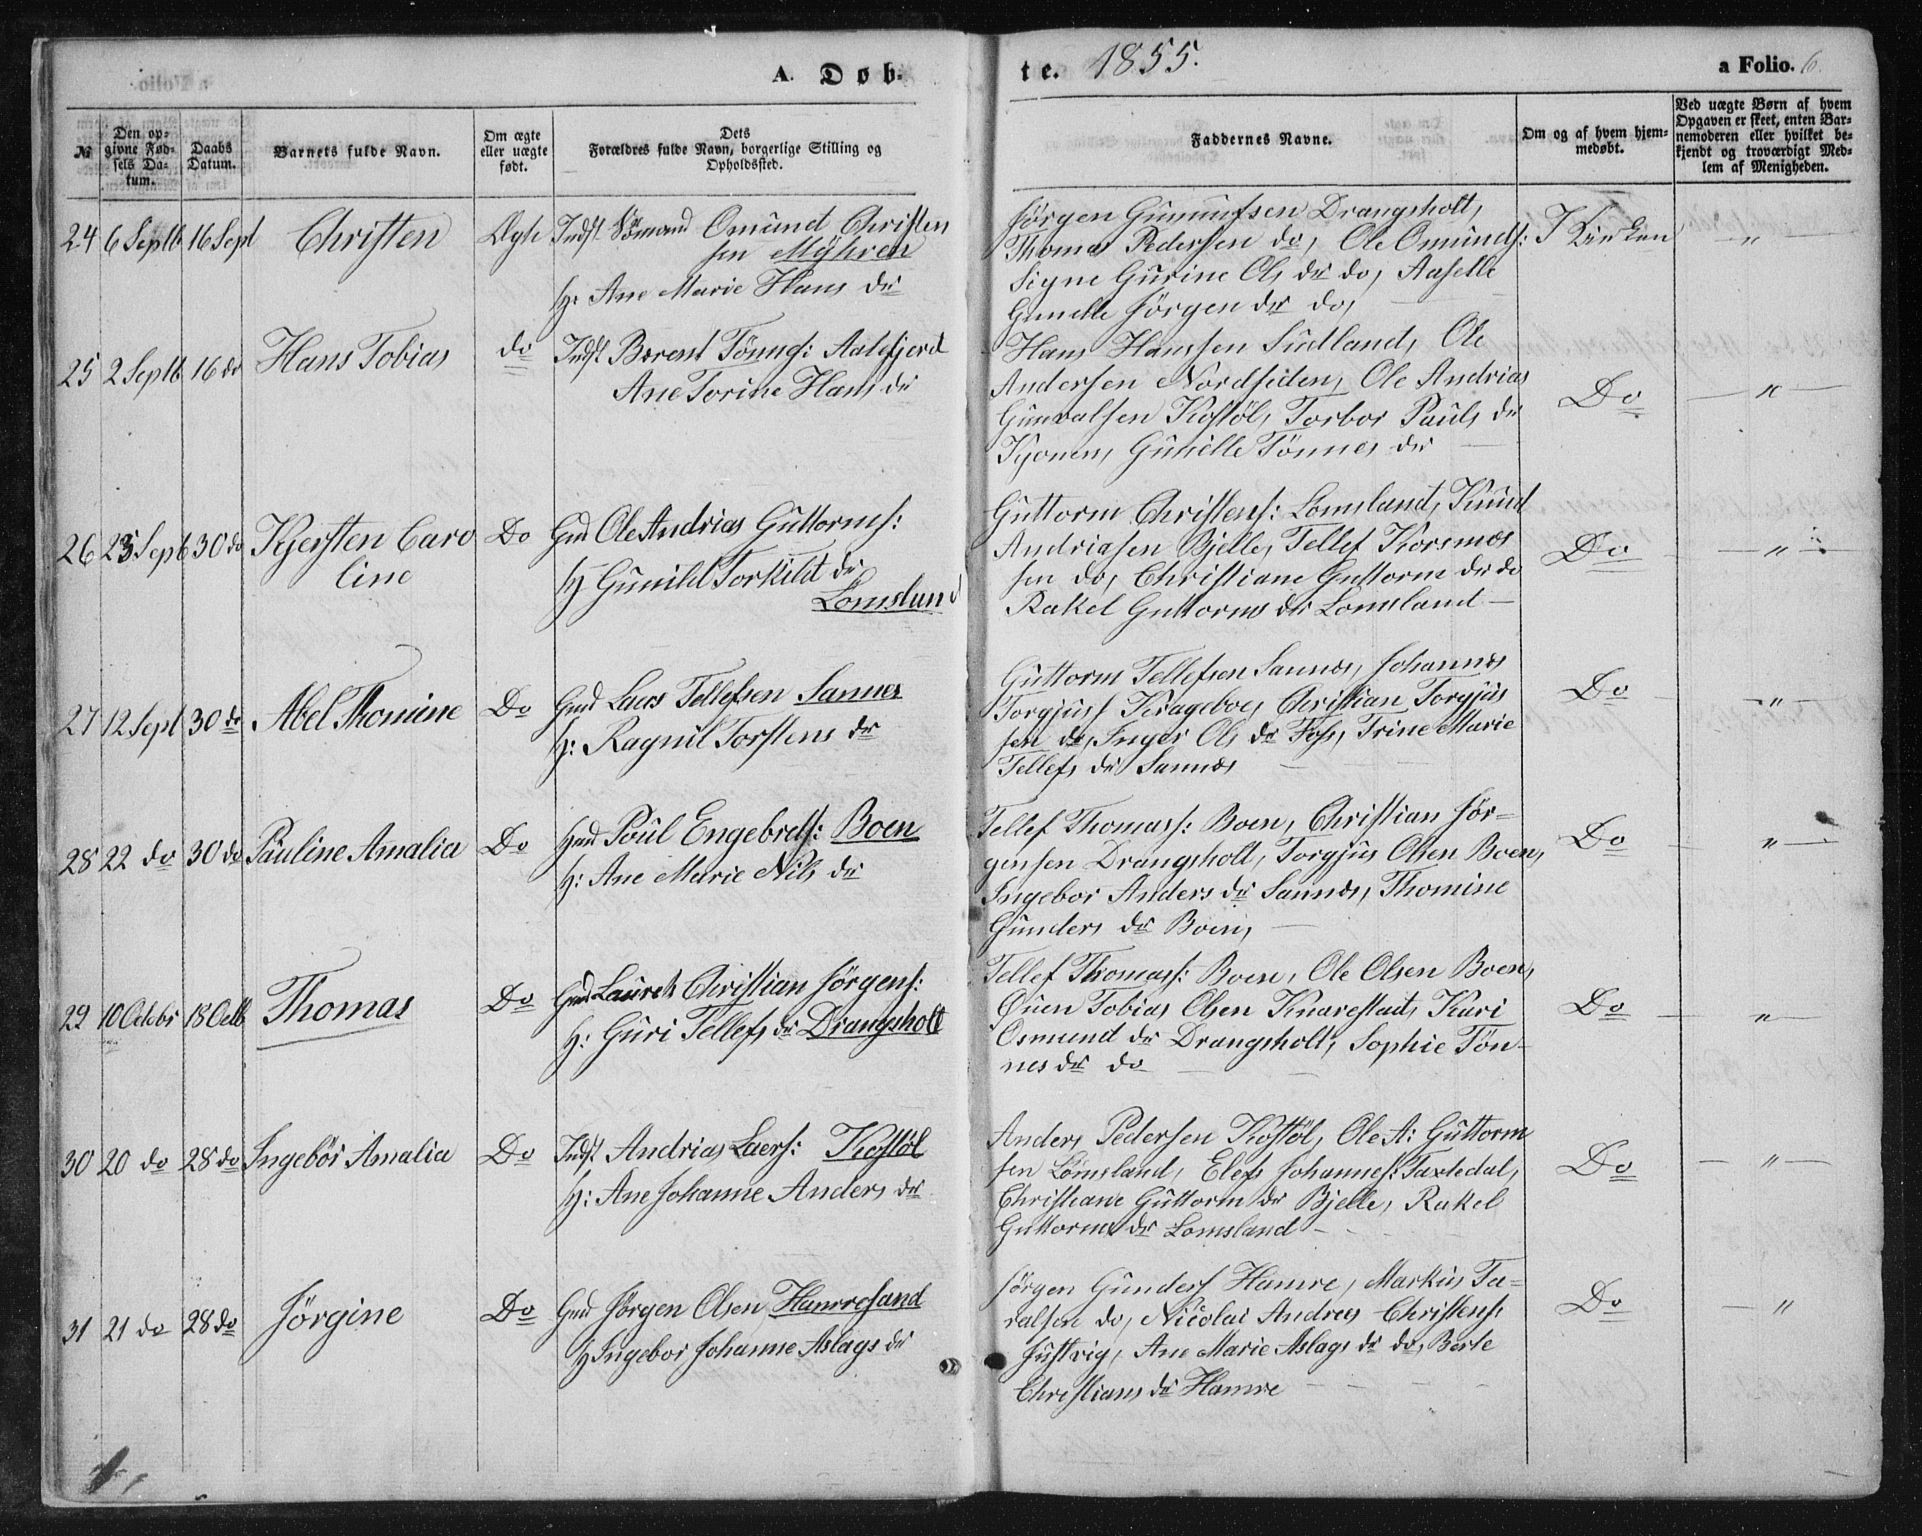 A. Døb-
te. 1855.
a Folio. 6.
№
Den op-
givne Fød-
sels Da-
tum.
Daabs
Datum.
Barnets fulde Navn.
Om ægte
eller uægte
født.
Dets
Forældres fulde Navn, borgerlige Stilling og
Opholdssted.
Faddernes Navne.
Om og af hvem hjem-
medøbt.
Ved uægte Børn af hvem
Opgaven er skeet, enten Bar-
nemoderen eller hvilket be-
kjendt og troværdigt Med-
lem af Menigheden.
24 6 Septb 16 Sept Christen Ægte Indst Sömand Omund Christen
sen Myhren
H: Ane Marie Hans dr
Jørgen Gunnufsen Drangsholt,
Thomas Pederssen do, Ole Omunds:
Signe Gurine Ols dr do, Aaselle
Gunelle Jörgen dr do,
I Kirken "
25 2 Septb 16 do Hans Tobias do Indst Berent Tönnes: Aalefjerd
Ane Torine Hans dr
Hans Hanssen Sudland, Ole
Anderssen Nordsiden, Ole Andrias
Gunvalsen Kostöl, Torbor Pauls dr
Kjonen, Gunelle Tönnes dr
Do "
26 23 Sept 30 do Kjersten Caro
line
Do Gmd Ole Andrias Guttorms:
H Gunild Torkild dr
Lomsland
Guttorm Christens: Lomsland, Knud
Andriasen Bjelle, Tellef Korsmos
sen do, Christiane Guttorm dr do
Rakel Guttorms dr Lomsland
Do "
27 12 Sept 30 do Abel Thomine Do Gmd Laas Tellefsen Sannes
H: Ragnil Torstens dr
Guttorm Tellefsen Sannes, Johannes
Torgjusf Krageboe, Christian Torgjus
sen do, Inger Ols dr Foss, Trine Marie
Tellefs dr Sannes
Do "
28 22 do 30 do Pauline Amalia Do Poul Engebrets: Boen
H: Ane Marie Nils dr
Tellef Thomass: Boen, Christian Jör-
gensen Drangsholt, Torgjus Olsen Boen,
Ingebor Anders dr Sannes, Thomine
Gunders dr Boen,
Do "
29 10 Octobr 18 Octb Thomas Do Gmd Laurets Christian Jörgens:
H: Guri Tellefs dr Drangsholt
Tellef Thomass: Boen, Ole Olsen Boen,
Ouen Tobias Olsen Knarestad, Kari
Osmund dr Drangsholt, Sophie Tön-
nes dr do
Do "
30 20 do 28 do Ingebör Amalia Do Indst Andrias Laers: Kostöl
H: Ane Johanne Anders dr
Anders Pedersen Kostöl, Ole A: Guttorm
sen Lomsland, Elefs Johannes: Taxledal,
Christiane Guttorm dr Bjelle, Rakel
Guttorms dr Lomsland
Do "
31 21 do 28 do Jörgine Do Gmd Jörgen Olsen Hamresand
H Ingebor Johanne Aslags dr
Jörgen Gunders Hamre, Markus Ta-
ralsen do, Nicolai Andreas Christens:
Justvig, Ane Marie Aslags dr do, Berte
Christians dr Hamre
Do "